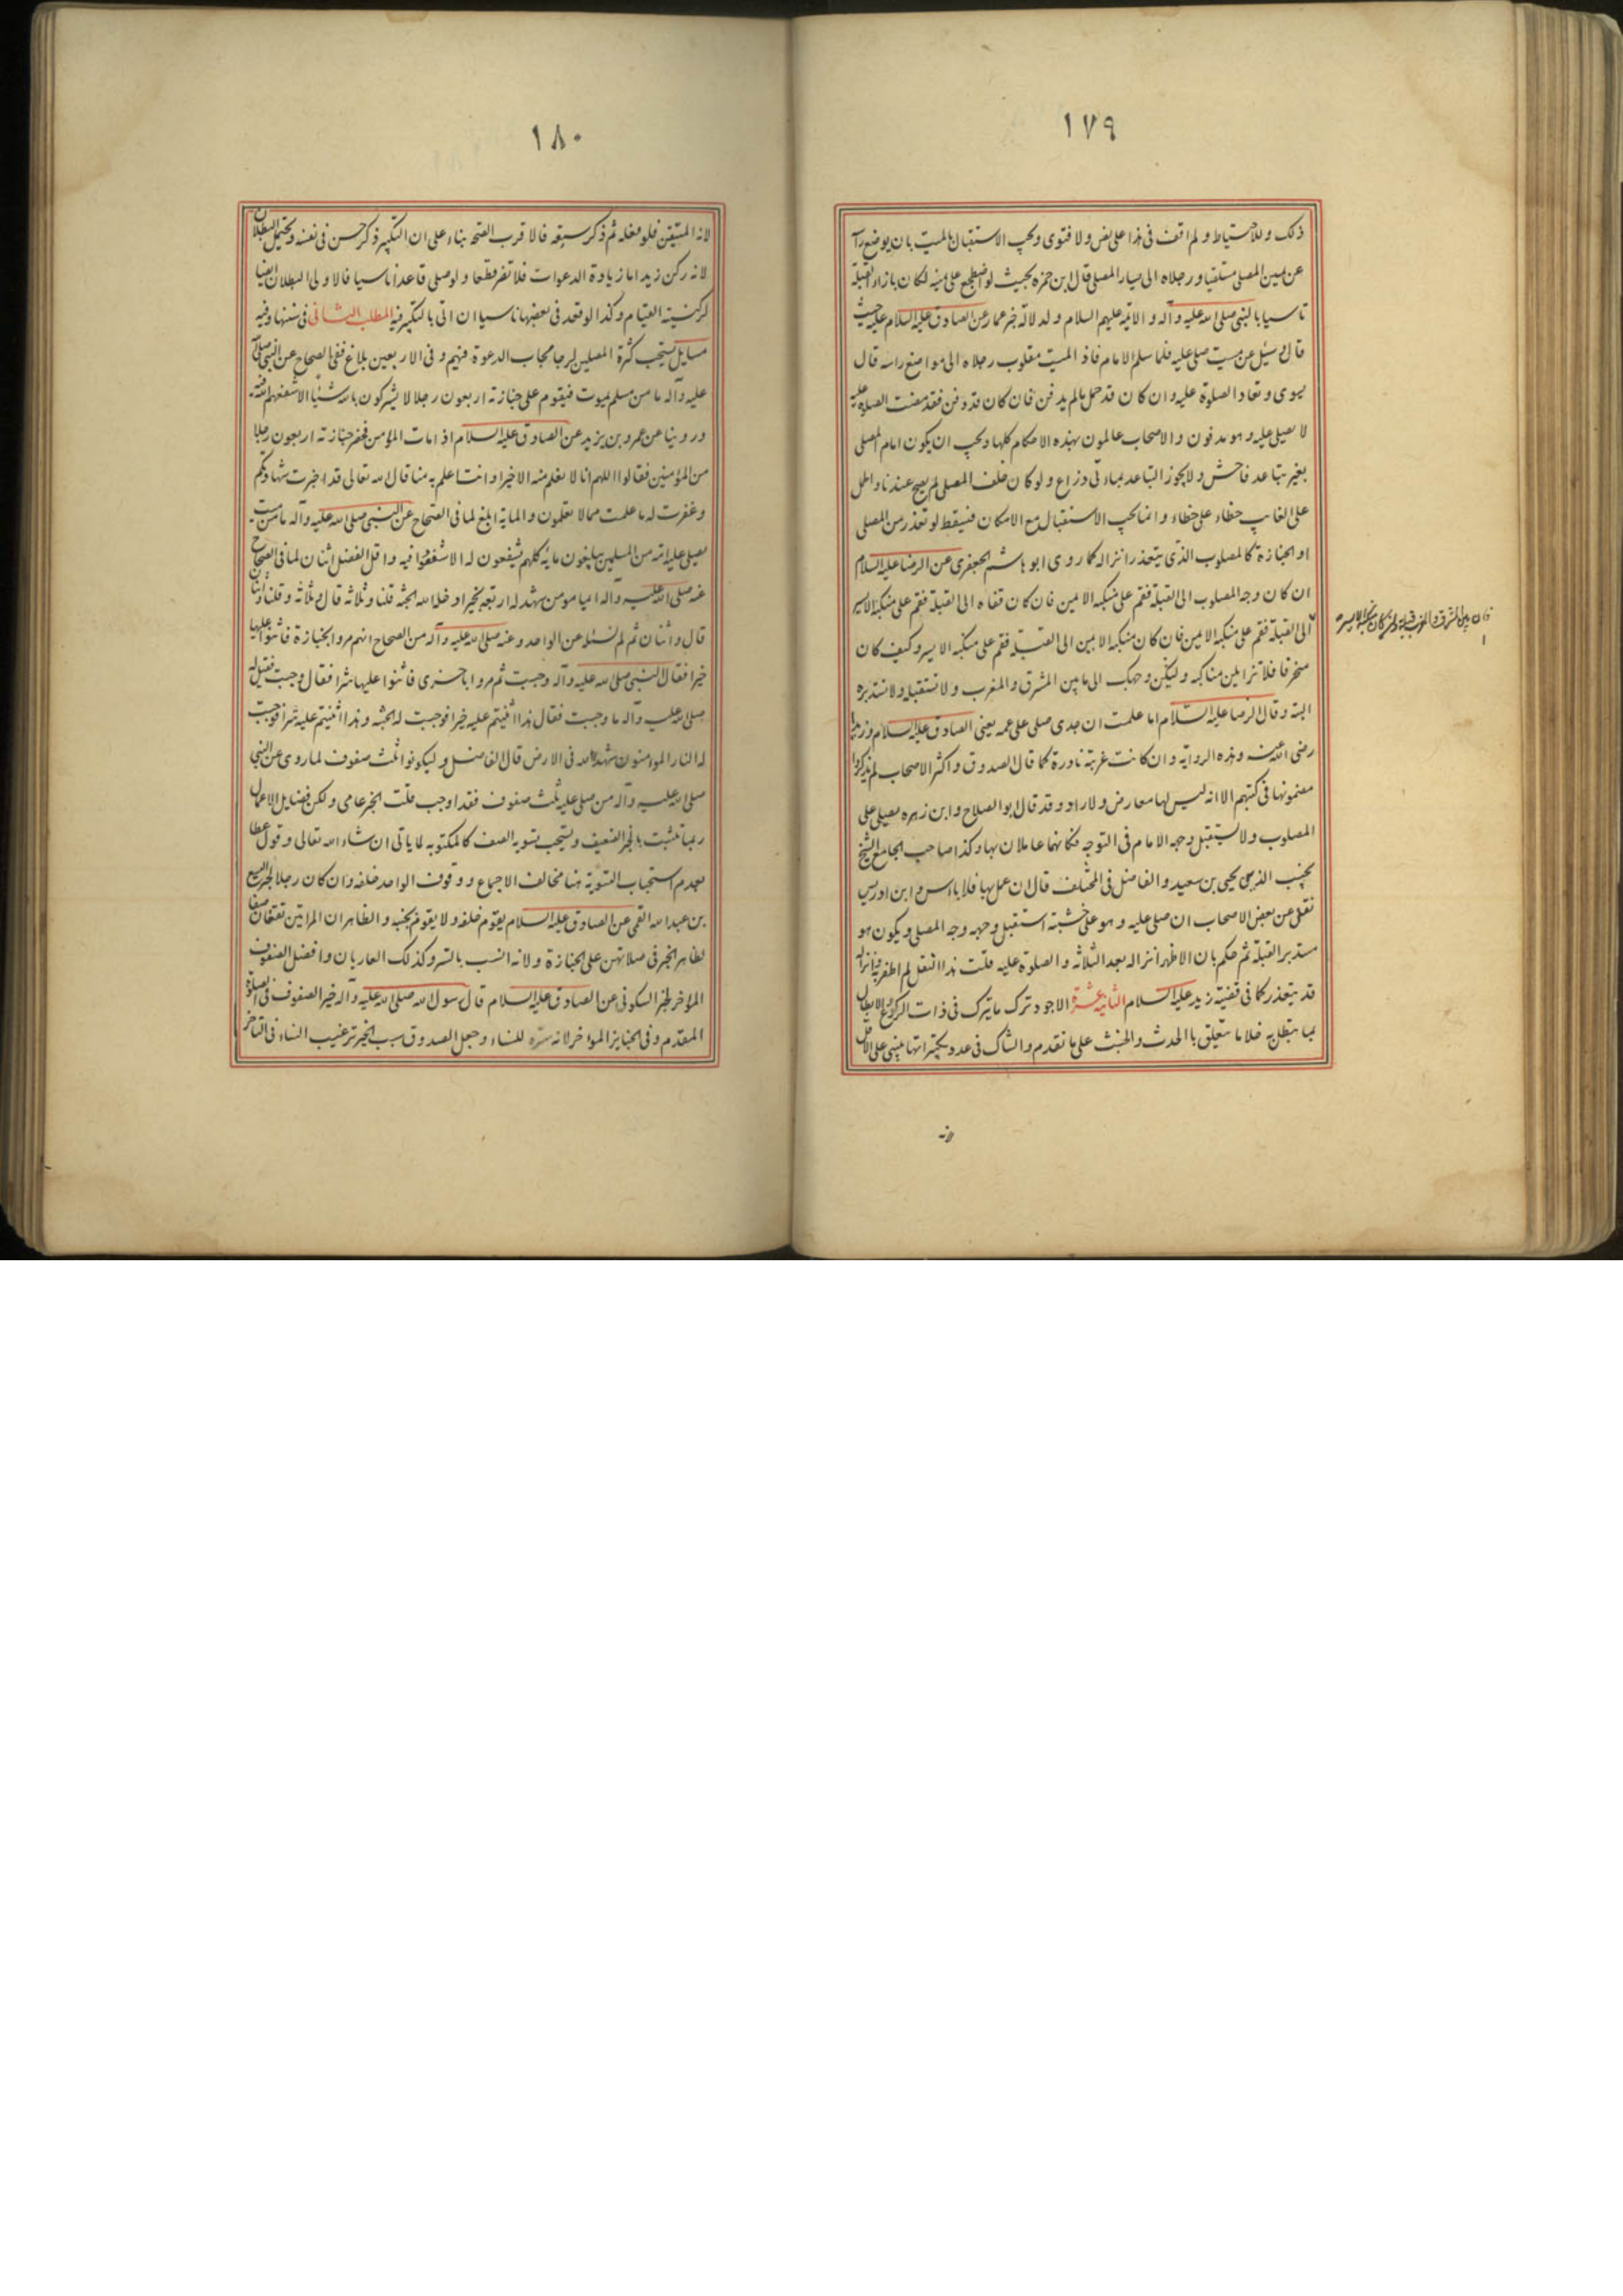 ١٧٩
ذلك وللاحتياط ولم اقف فى هذا على نص ولا فتوى ويجب الاستقبال بالميت بان يوضع رآ
عن يمين المصلى مستلقيا ورجلاه الى يسار المصلى قال ابن حمزه بحيث لو اضطجع على يمينه لكان بازاء القبلة
تاسيا بالنبى صلى الله عليه وآله والائمه عليهم السلام ولدلالة خبر عمار عن الصادق عليه السلام حيث
قال وسئل عن ميت صلى عليه فلما سلم الامام فاذا الميت مقلوب رجلاه الى موضع راسه قال
يسوى وتعاد الصلوة عليه وان كان قد حمل ما لم يدفن فان كان قد دفن فقد مضت الصلوة عليه
لا يصلى عليه وهو مدفون والاصحاب عالمون بهذه الاحكام كلها ويجب ان يكون امام المصلى
بغير تباعد فاحش ولا يجوز التباعد بمأتى ذراع ولو كان خلف المصلى لم يصح عندنا واطل
على الغايب خطاء على خطاء وانما يجب الاستقبال مع الامكان فيسقط لو تعذر من المصلى
او الجنازة كالمصلوب الذى يتعذر انزاله كما روى ابو هاشم الجعفرى عن الرضا عليه السلام
ان كان وجه المصلوب الى القبلة فقم على منكبه الايمن فان كان قفاه الى القبلة فقم على منكبه الايسر
فان بين المشرق والمغرب قبلة وان كان منكبه الايسر
الى القبلة فقم على منكبه الايمن فان كان منكبه الايمن الى القبلة فقم على منكبه الايسر وكيف كان
منحرفا فلا تزايلن مناكبه وليكن وجهك الى ما بين المشرق والمغرب ولا تستقبله ولا تستدبره
البتة وقال الرضا عليه السلام اما علمت ان جدى صلى على عمه يعنى الصادق عليه السلام وزيدا
رضى الله عنه وهذه الرواية وان كانت غريبة نادرة كما قال الصدوق واكثر الاصحاب لم يذكروا
مضمونها فى كتبهم الا انه ليس لها معارض ولا راد وقد قال ابو الصلاح وابن زهره يصلى على
المصلوب ولا يستقبل وجهه الامام فى التوجه فكانهما عاملان بها وكذا صاحب الجامع الشيخ
نجيب الدين يحيى بن سعيد والفاضل فى المختلف قال ان عمل بها فلا باس وابن ادريس
نقل عن بعض الاصحاب ان صلى عليه وهو على خشبة استقبل وجهه وجه المصلى ويكون هو
مستدبر القبلة ثم حكم بان الاظهر انزاله بعد الثلاثة والصلوة عليه قلت هذا النقل لم اظفر به وانزاله
قد يتعذر كما فى قضية زيد عليه السلام الثانية عشرة الاجود ترك ما يترك فى ذات الركوع والابطال
بما يبطل به خلا ما يتعلق بالحدث والخبث على ما تقدم والشاك فى عدد تكبيراتها يبنى على الاقل
لانه
١٨٠
لانه المتيقن فلو فعله ثم ذكر سبقه فالاقرب الصحه بناء على ان التكبير ذكر حسن فى نفسه ويحتمل البطلان
لانه ركن زيد اما زيادة الدعوات فلا تضر قطعا ولو صلى قاعدا ناسيا فالاولى البطلان ايضا
لركنية القيام وكذا لو قعد فى بعضها ناسيا ان اتى بالتكبير فيه المطلب الثانى فى سننها وفيه
مسايل يستحب كثرة المصلين لرجا مجاب الدعوة فيهم وفى الاربعين بلاغ ففى الصحاح عن النبى صلى الله
عليه وآله ما من مسلم يموت فيقوم على جنازته اربعون رجلا لا يشركون بالله شيئا الا شفعهم الله فيه
وروينا عن عمر بن يزيد عن الصادق عليه السلام اذا مات المؤمن فحضر جنازته اربعون رجلا
من المؤمنين فقالوا اللهم انا لا نعلم منه الا خيرا وانت اعلم به منا قال الله تعالى قد اجزت شهادتكم
وغفرت له ما علمت مما لا تعلمون والماية ابلغ لما فى الصحاح عن النبى صلى الله عليه وآله ما من ميت
يصلى عليه امة من المسلمين يبلغون مايه كلهم يشفعون له الا شفعوا فيه واقل الفضل اثنان لما فى الصحاح
عنه صلى الله عليه وآله ايما مؤمن شهد له اربعة بخير ادخله الله الجنة قلنا وثلاثه قال وثلاثه وقلنا واثنان
قال واثنان ثم لم نسئله عن الواحد وعنه صلى الله عليه وآله من الصحاح انهم مروا بجنازة فاثنوا عليها
خيرا فقال النبى صلى الله عليه وآله وجبت ثم مروا باخرى فاثنوا عليها شرا فقال وجبت فقيل له
صلى الله عليه وآله ما وجبت فقال هذا اثنيتم عليه خيرا فوجبت له الجنه وهذا اثنيتم عليه شرا فوجبت
له النار المؤمنون شهداء الله فى الارض قال الفاضل وليكونوا ثلث صفوف لما روى عن النبى
صلى الله عليه وآله من صلى عليه ثلث صفوف فقد اوجب قلت الخبر عامى ولكن فضايل الاعمال
ربما تثبت بالخبر الضعيف ويستحب تسوية الصف كالمكتوبه لما ياتى ان شاء الله تعالى وقول عطا
بعدم استحباب التسوية هنا مخالف الاجماع ووقوف الواحد خلفه وان كان رجلا لخبر اليسع
بن عبد الله القمى عن الصادق عليه السلام يقوم خلفه ولا يقوم بجنبه والظاهر ان المراتين تقفان صفا
لظاهر الخبر فى صلاتهن على الجنازة ولانه انسب بالستر وكذلك العاريان وافضل الصفوف
المؤخر لخبر السكونى عن الصادق عليه السلام قال رسول الله صلى الله عليه وآله خير الصفوف فى الصلوة
المقدم وفى الجنايز المؤخر لانه ستره للنساء وجعل الصدوق سبب الخبر ترغيب النساء فى التاخر